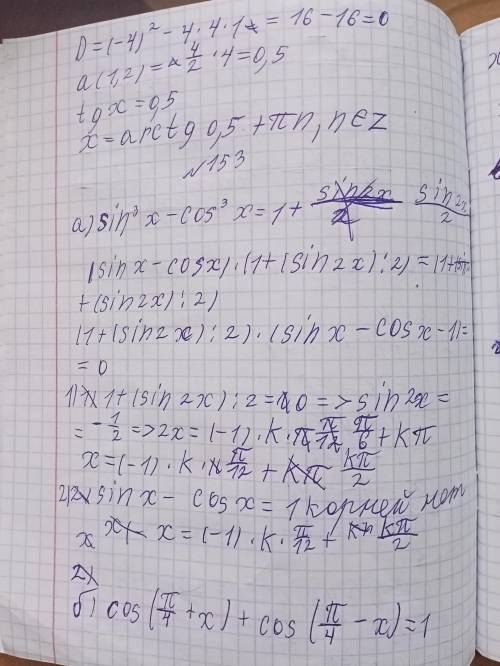 D=(-4)² - 4 · 4 · 1 = 16-16=0
a(1,2)= 4/2 · 4=0,5
tg x = 0,5
x= arctg 0,5 + πn, n∈z
№153
а) sin³x - cos³x = 1 + sin2x/2
(sin x - cosx) · (1+(sin2x):2) = (1+
+(sin2x):2)
(1+(sin2x):2) · (sin x - cosx-1)=
=0
1) 1+(sin2x):2=0 => sin2x=
= -1/2 => 2x = (-1) · k · π/6 + kπ
x=(-1) · k · π/12 + kπ/2
2) sin x - cos x = 1 корней нет
x x = (-1) · k · π/12 + kπ/2
б) cos(π/4 + x) + cos(π/4 - x)=1